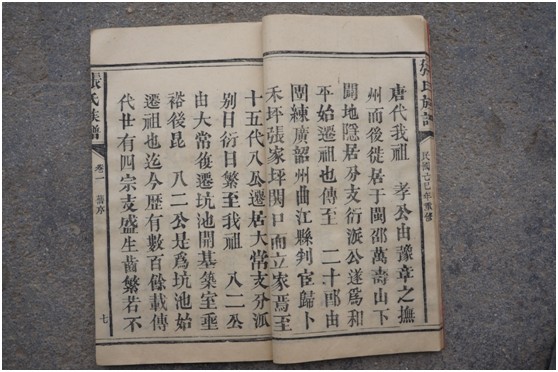 張氏族譜
民國己巳年重修
唐代我祖 孝公由豫章之撫
州而後徙居于閩邵萬壽山下
閩地隱居分支衍派公遂爲和
平始遷祖也傳至 二十郎由
團練廣韶州曲江縣判宦歸卜
禾坪張家坪関口而立家焉至
十五代八公遷居大常支分派
别日衍日繁至我祖 八二公
由大常後遷坑池開基築室垂
裕後昆 八二公是爲坑池始
遷祖也迄今歴有數百餘載傳
代廿有四宗支盛生齒繁若不
張氏族譜
卷一 舊序
七